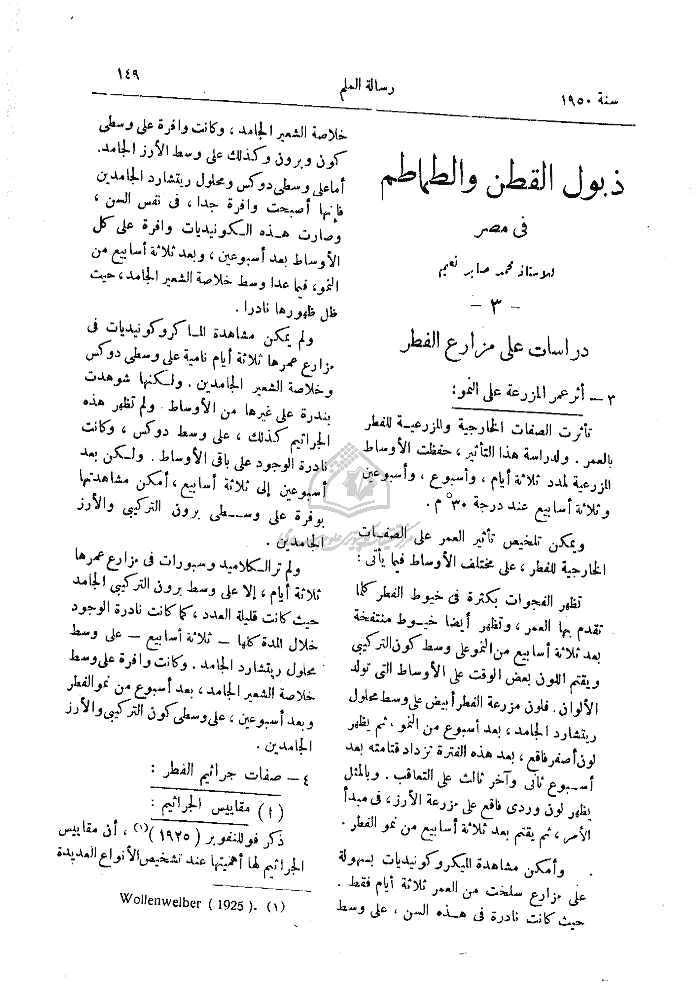 سنة ١٩٥٠
رسالة العلم
١٤٩
ذبول القطن والطماطم
فى مصر
للاستاذ محمد صابر نعيم
- ٣ -
دراسات على مزارع الفطر
٣ — أثر عمر المزرعة على النمو :
تأثرت الصفات الخارجية والمزرعية للفطر
بالعمر . ولدراسة هذا التأثير ، حفظت الأوساط
المزرعية لمدد ثلاثة أيام ، وأسبوع ، وأسبوعين
وثلاثة أسابيع عند درجة ٣٠° م .
ويمكن تلخيص تأثير العمر على الصفات
الخارجية للفطر ، على مختلف الأوساط فيما يأتى :
تظهر الفجوات بكثرة فى خيوط الفطر كلما
تقدم بها العمر ، وتظهر أيضا خيوط منتفخة
بعد ثلاثة أسابيع من النمو على وسط كون التركيبى
ويقتم اللون بعض الوقت على الأوساط التى تولد
الألوان . فلون مزرعة الفطر أبيض على وسط محلول
ريتشارد الجامد ، بعد أسبوع من النمو . ثم يظهر
لون أصفر فاقع ، بعد هذه الفترة تزداد قتامته بعد
أسبوع ثانى وآخر ثالث على التعاقب . وبالمثل
يظهر لون وردى فاقع على مزرعة الأرز ، فى مبدأ
الأمر ، ثم يقتم بعد ثلاثة أسابيع من نمو الفطر .
وأمكن مشاهدة الميكروكونيديات بسهولة
على مزارع سلخت من العمر ثلاثة أيام فقط .
حيث كانت نادرة فى هذه السن ، على وسط
خلاصة الشعير الجامد ، وكانت وافرة على وسطى
كون وبرون وكذلك على وسط الأرز الجامد.
أما على وسطى دوكس ومحلول ريتشارد الجامدين
فإنها أصبحت وافرة جدا ، فى نفس السن ،
وصارت هذه الكونيديات وافرة على كل
الأوساط بعد أسبوعين ، وبعد ثلاثة أسابيع من
النمو، فيما عدا وسط خلاصة الشعير الجامد، حيث
ظل ظهورها نادرا .
ولم يمكن مشاهدة الماكروكونيديات فى
مزارع عمرها ثلاثة أيام نامية على وسطى دوكس
وخلاصة الشعير الجامدين . ولكنها شوهدت
بندرة على غيرها من الأوساط . ولم تظهر هذه
الجراثيم كذلك ، على وسط دوكس ، وكانت
نادرة الوجود على باقى الأوساط . ولكن بعد
أسبوعين إلى ثلاثة أسابيع ، أمكن مشاهدتها
بوفرة على وسطى برون التركيبى والأرز
الجامدين .
ولم تر الكلاميدوسبورات فى مزارع عمرها
ثلاثة أيام ، إلا على وسط برون التركيبى الجامد
حيث كانت قليلة العدد ، كما كانت نادرة الوجود
خلال المدة كلها — ثلاثة أسابيع — على وسط
محلول ريتشارد الجامد . وكانت وافرة على وسط
خلاصة الشعير الجامد ، بعد أسبوع من نمو الفطر
وبعد أسبوعين ، على وسطى كون التركيبى والأرز
الجامدين .
٤ — صفات جراثيم الفطر :
( ا ) مقاييس الجراثيم :
ذكر فوللنفوبر ( ١٩٢٥ )(١) ، أن مقاييس
الجراثيم لها أهميتها عند تشخيص الأنواع العديدة
(١) -. Wollenwelber ( 1925 )